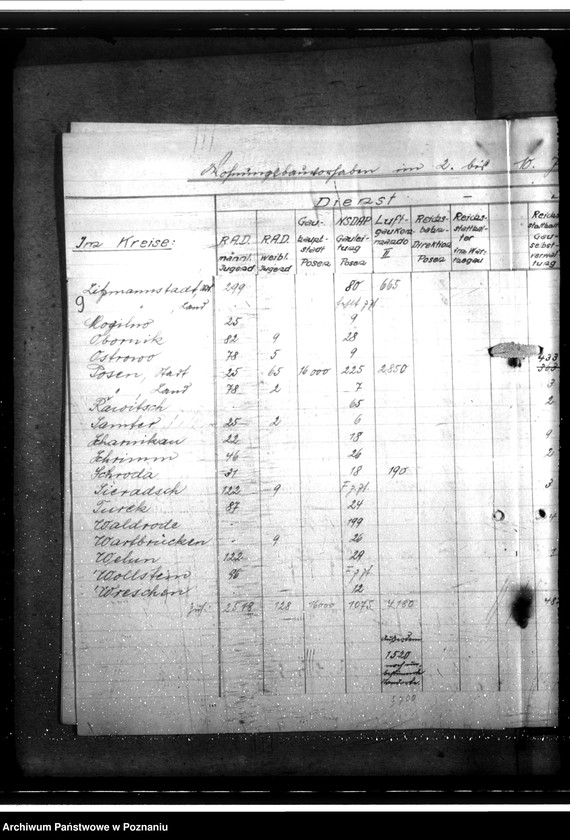 Wohnungsbauvorhaben im 2. bis 10.
Dienst -
Im Kreise: R.A.D. männl. Jugend R.A.D. weibl. Jugend Gauhauptstadt Posen NSDAP Gauleitung Posen Luftgaukommando II Reichsbahn Direktion Posen Reichsstatthalter im Warthegau Reichsstatthalt Gauselbstverwaltung
Litzmannstadt, Stadt 299 80 665
9 " , Land
Mogilno 25 9
Obornik 82 9 28
Ostrowo 78 5 9 433
Posen, Stadt 25 65 16000 225 2850 363
" Land 78 2 7 3
Rawitsch . 65 2
Samter 25 2 6
Scharnikau 22 18 9
Schrimm 46 26 2
Schroda 31 18 190
Sieradsch 122 9 3
Turek 87 24
Waldrode . 199 4
Wartbrücken . 9 26
Welun 122 29
Wollstein 46
Wreschen . 12
128 16000 1075
Außerdem
1520
noch un-
bestimmte
5700